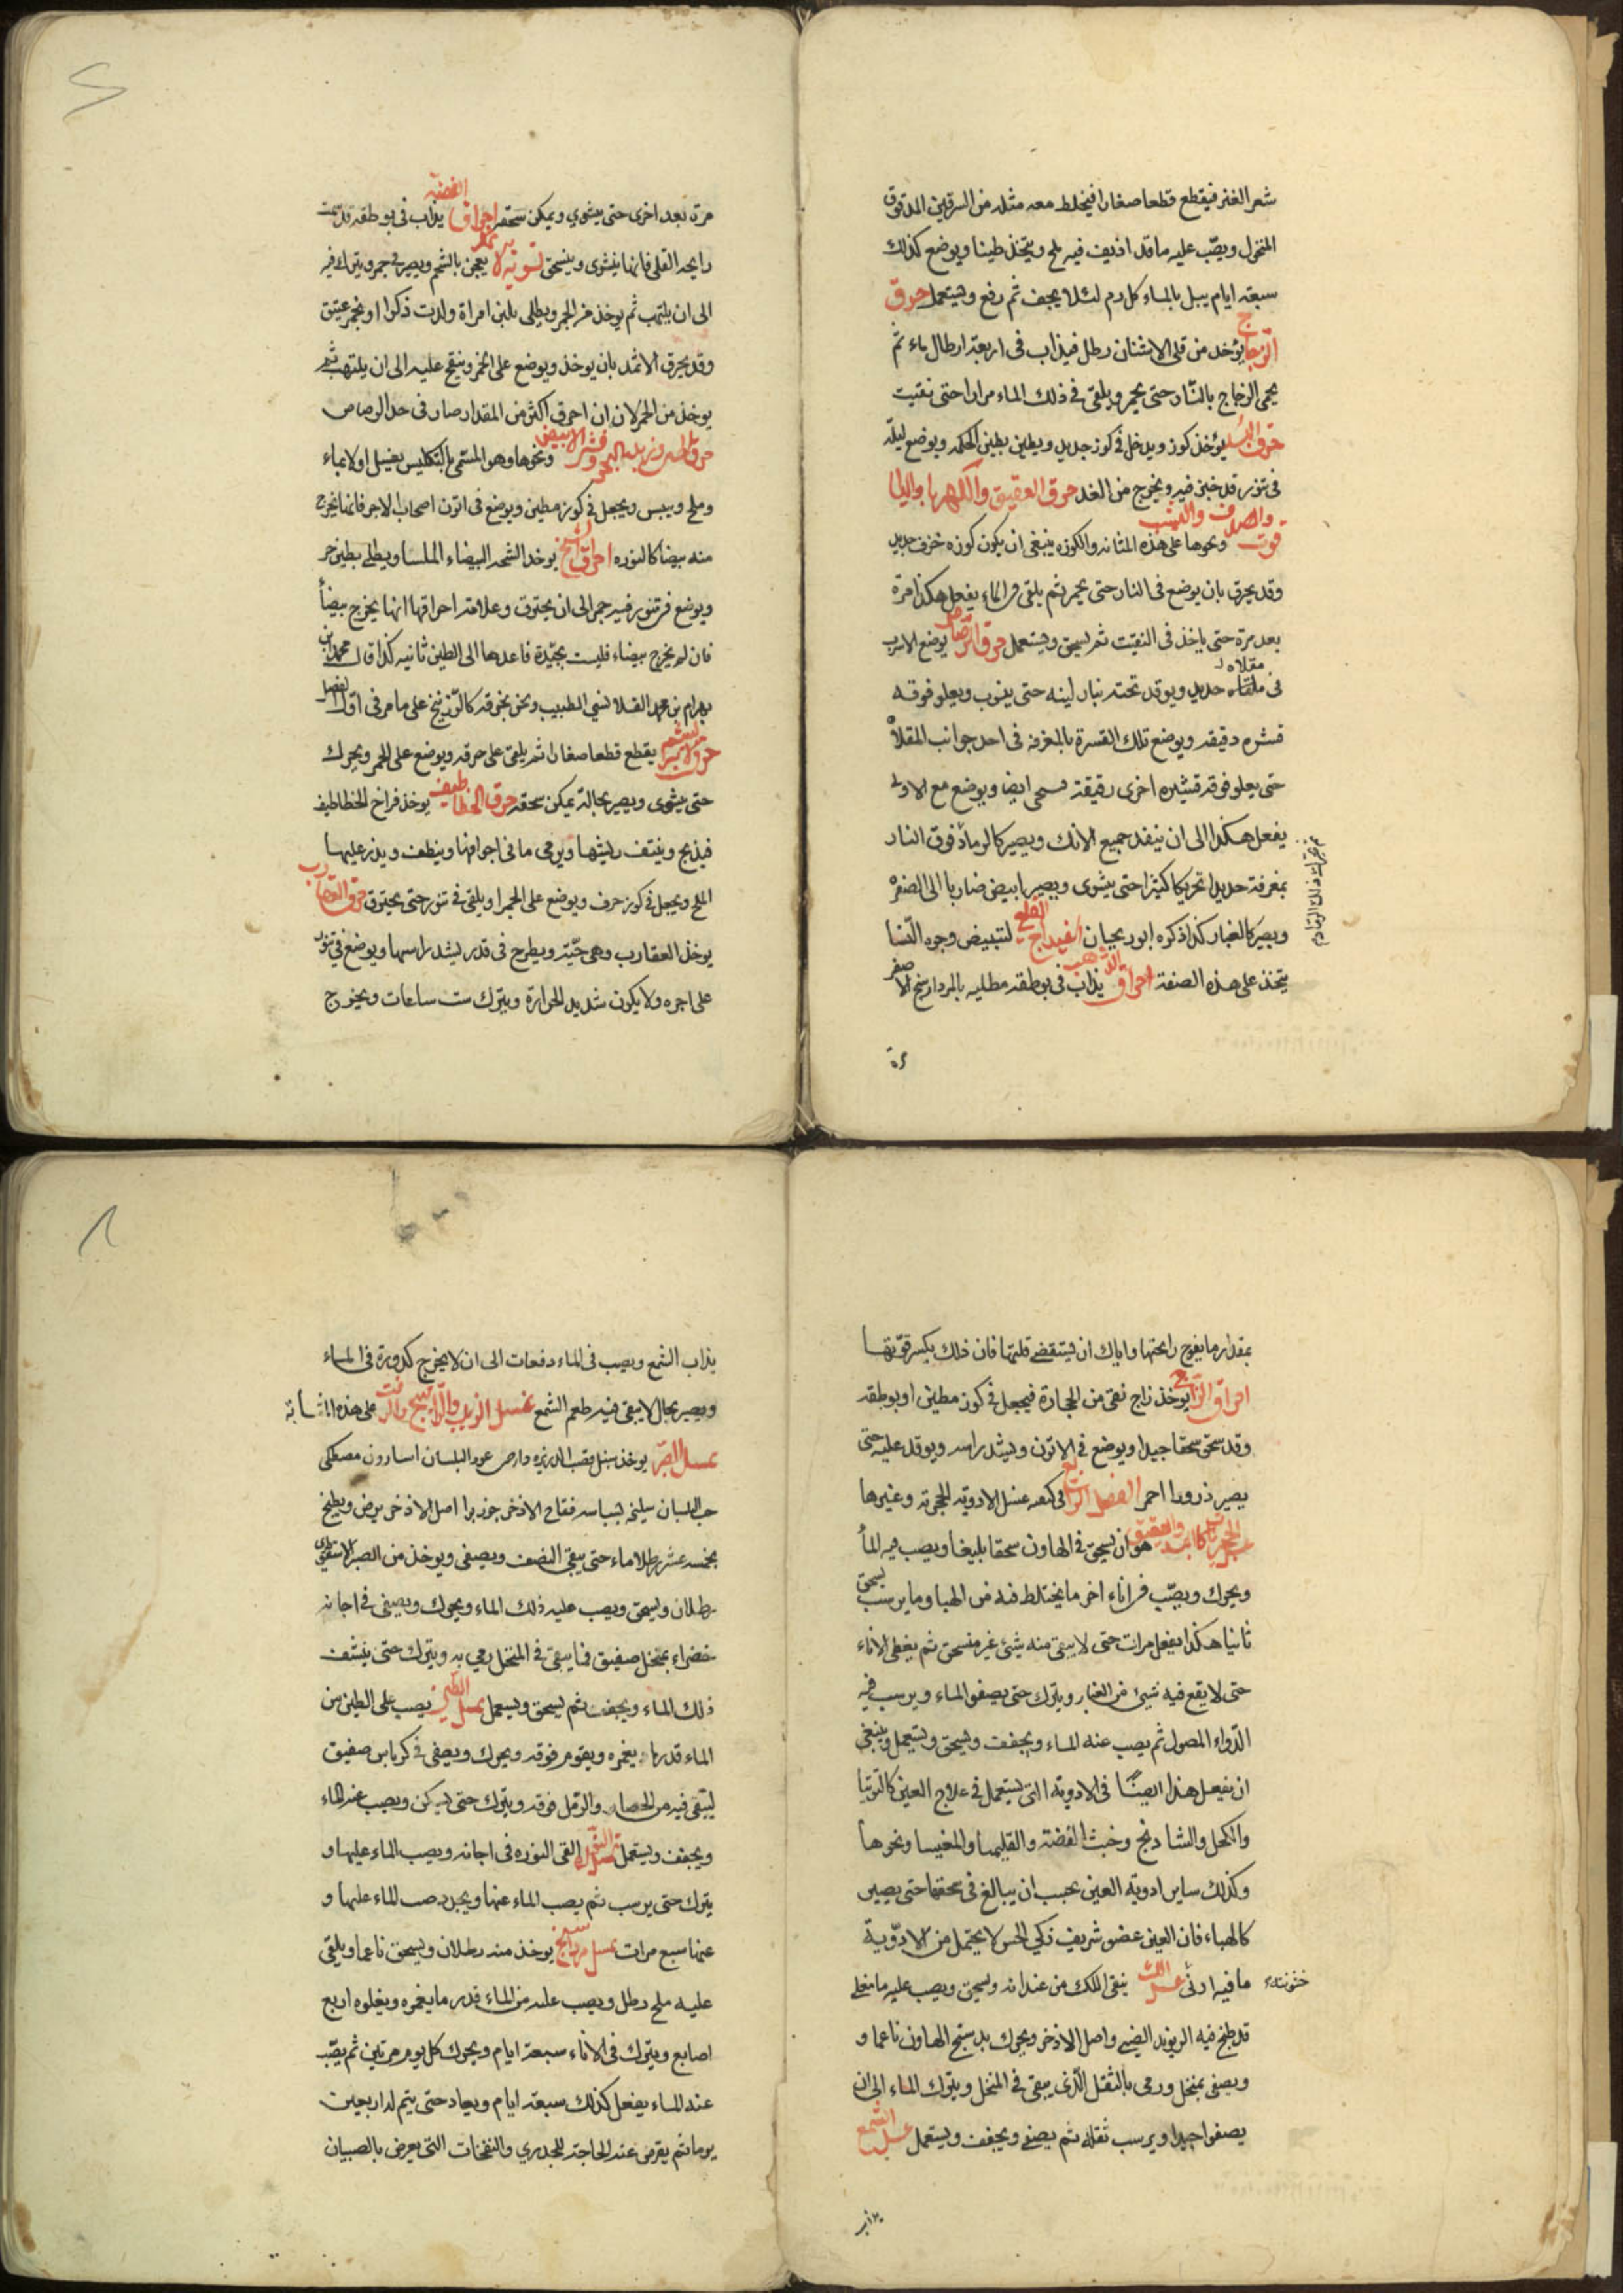 شعر الغنز فيقطع قطعا صغارا فيخلط معه مثله من السرقين المدقوق
المنخول ويصّب عليه ماقد اذيف فيه ملح ويتخذ طينا ويوضع كذلك
سبعة ايام يبل بالماء كل يوم لئلا يجف ثم رفع ويستعمل حرق
الزجاج يؤخذ من قلى الاشنان رطل فيذاب فى اربعة ارطال ماء ثم
يحمى الزجاج بالنّار حتى يحمر ويلقى فى ذلك الماء مرارا حتى تفتيت
حرق البسد يؤخذ كوز ويدخل فى كوز جديد ويطين بطين الحكمة ويوضع ليلة
فى تنور قد خبز فيه ويخرج من الغد حرق العقيق والكهربا واليا
قوت والصدف واليشب ونحوها على هذه المثابه والكوزه ينبغى ان يكون كوزه خزف جديد
وقد يحرق بان يوضع فى النار حتى يحمر ثم يلقى فى الماء يفعل هكذا مرة
بعد مرة حتى ياخذ فى التفتت ثم يسحق ويستعمل حرق الرّصاص يوضع الاسرب
فى مقلاه حديد ويوقد تحته بنار لينه حتى يذوب ويعلو فوقه
قشره دقيقه ويوضع تلك القسرة بالمغرفه فى احد جوانب المقلاة
حتى يعلو فوقه قشيره اخرى رقيقة فسحى ايضا ويوضع مع الاولى
يفعل هكذا الى ان ينفد جميع الانك ويصير كالرماد فوق النار
ثم يحرك ذلك الرماد
بمغرفة حديد تحريكا كثيرا حتى يشوى ويصير ابيض ضاربا الى الصفرة
ويصير كالغبار كذا ذكره ابوريحان اسفيداج القلعي لتبييض وجوه النّسا
يتخذ على هذه الصفة احراق الذّهب يذاب فى بوطقه مطليه بالمرداسنج الاصفر
مرة
مرة بعد اخرى حتى يشوي ويمكن سحقه احراق الفضه يذاب فى بوطقه قد شمت
رايحه القلى فانها ينشوى وينسحق تشويه الاثمد يعجن بالشحم ويصير فى جمر ويترك فيه
الى ان يلتهب ثم يوخذ من الجمر ويطلى بلبن امراة ولدت ذكرا او بخمر عتيق
وقد يحرق الاثمد بان يوخذ ويوضع على الجمر وينفخ عليه الى ان يلتهب ثم
يوخذ من الجمر لان ان احرق اكثر من المقدار صار فى حد الرصاص
حرق زبد البحر وقشر الابيض ونحوها وهو المسمى بالتكليس يغسل اولا بماء
وملح ويبس ويجعل فى كوز مطين ويوضع فى اتون اصحاب الاجر فانها يخرج
منه بيضا كالنوره احراق الشبح يوخذ الشحه البيضاء الملسا ويطلى بطين حر
ويوضع فى تنور فيه جمر الى ان يحترق وعلامة احراقها انها يخرج بيضاً
فان لم يخرج بيضاء فليست بجيّدة فاعدها الى الطين ثانيه كذا قال محمد بن
بهرام بن محمد القلانسى الطبيب ونحن نحرقه كالزّرنيخ على ما مر فى اوّل الفصل
حرق الابريشم يقطع قطعا صغارا ثم يلقى على حرقه ويوضع على الجمر ويحرك
حتى يشوى ويصير بحالة يمكن سحقه حرق الخطاطيف يوخذ فراخ الخطاطيف
فيذبح وينتف ريشها ويرمى ما فى اجوافها وينظف ويذر عليها
الملح ويجعل فى كوز خزف ويوضع على الجمر او يلقى فى تنور حتى يحترق حرق العقارب
يوخذ العقارب وهى حيّة ويطرح فى قدر ليشد راسها ويوضع فى تنور
على اجره ولا يكون شديد الحرارة ويترك ست ساعات ويخرج
بمقدار ما يفوح رايحتها واياك ان يستقصى قلتها فان ذلك يكسر قوّتها
احراق الزّاج يوخذ زاج نقى من الحجارة فيجعل فى كوز مطين او بوطقه
وقد سحق سحقا جيدا ويوضع فى الاتون ويشد راسه ويوقد عليه حتى
يصير ذرودا احمر الفصل الرّابع فى كيفيه غسل الادويه الحجريه وغيرها
غسل الحجريات كالاثمد والعقيق هو ان يسحق فى الهاون سحقا بليغا ويصب فيه الماء
ويحرك ويصّب فى اناء اخر ما يختلط فيه من الهبا وما يرسب يسحق
ثانيا هكذا يفعل مرات حتى لا يبقى منه شئ غير منسحق ثم يغطى الاناء
حتى لا يقع فيه شيئ من الغبار ويترك حتى يصفو الماء ويرسب فيه
الدّواء المصول ثم يصب عنه الماء ويجفف ويسحق ويستعمل وينبغى
ان يفعل هذا ايضًا فى الادويه التى يستعمل فى علاج العين كالتوتيا
والكحل والشادنج وخبث الفضة والقليميا والمغيسا ونحوها
وكذلك ساير ادويه العين يجب ان يبالغ فى سحقها حتى يصير
كالهباء فان العين عضو شريف ذكي الحس لا يحتمل من الادّوية
ما فيه ادنى خشونة غسل اللك ينقى اللك من عيدانه ويسحق ويصب عليه ما مغلى
قد طبخ فيه الريوند الصينى واصل الاذخر ويحرك بدستج الهاون ناعما و
ويصفى بمنخل ورمى بالثفل الّذى يبقى فى المنخل ويترك الماء الى ان
يصفوا جيدا ويرسب ثفله ثم يصفى ويجفف ويستعمل غسل الشمع
يذاب
يذاب الشمع ويصب فى الماء دفعات الى ان لا يخرج كدورة فى الماء
ويصير بحال لا يبقى فيه طعم الشمع غسل الزيت والرّاتينج والزفت على هذه المثابة
غسل الصّبر يوخذ سنبل قصب الذريره دارص عود البلسان اسارون مصطكى
حب البلسان سليخه بسباسه فقاح الاذخر جوز بوا اصل الاذخر يرض ويطبخ
بخمسه عشر رطلا ماء حتى يبقى النصف ويصفى ويوخذ من الصبر الاسقطرى
رطلان ويسحق ويصب عليه ذلك الماء ويحرك ويصفى فى اجانه
خضراء بمنخل صفيق فما يبقى فى المنخل رمي به ويترك حتى ينشف
ذلك الماء ويجفف ثم يسحق ويستعمل غسل الطّين يصب على الطين من
الماء قدر ما يغمره ويقوم فوقه ويحرك ويصفى فى كرباس صفيق
ليبقى فيه من الحصاه والرّمل فوقه ويترك حتى يسكن ويصب عنه الماء
ويجفف ويستعمل غسل النّورة القى النوره فى اجانه ويصب الماء عليها و
يترك حتى يرسب ثم يصب الماء عنها ويجدد صب الماء عليها و
عنها سبع مرات غسل مرداسنج يوخذ منه رطلان ويسحق ناعما ويلقى
عليه ملح رطل ويصب عليه من الماء قدر ما يغمره ويعلوه اربع
اصابع ويترك فى الاناء سبعة ايام ويحرك كل يوم مرتين ثم يصّب
عنه الماء يفعل كذلك سبعة ايام ويعاد حتى يتم له اربعين
يوما ثم يقرص عند الحاجة للجدري والنفخات التى يعرض بالصبيان